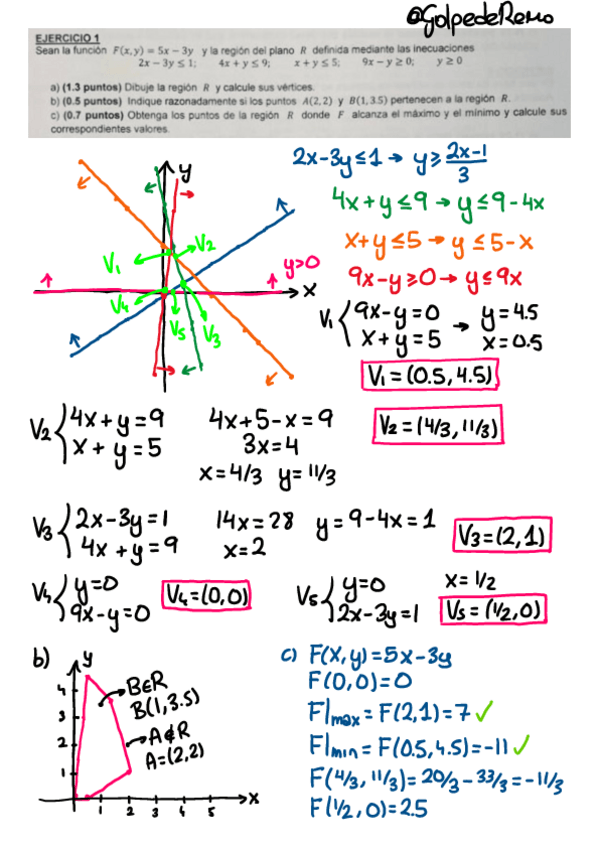 @GolpedeRemo
EJERCICIO 1
Sean la función F(x,y) = 5x − 3y y la región del plano R definida mediante las inecuaciones
2x − 3y ≤ 1; 4x + y ≤ 9; x + y ≤ 5; 9x − y ≥ 0; y ≥ 0
a) (1.3 puntos) Dibuje la región R y calcule sus vértices.
b) (0.5 puntos) Indique razonadamente si los puntos A(2, 2) y B(1, 3.5) pertenecen a la región R.
c) (0.7 puntos) Obtenga los puntos de la región R donde F alcanza el máximo y el mínimo y calcule sus
correspondientes valores.
2x-3y≤1 → y≥ 2x-1/3
4x+y≤9 → y≤9-4x
x+y≤5 → y≤5-x
9x-y≥0 → y≤9x
y
V1
V2
y>0
x
V4
V5
V3
V1 { 9x-y=0
x+y=5 → y=4.5
x=0.5
V1=(0.5,4.5)
V2 { 4x+y=9
x+y=5
4x+5-x=9
3x=4
x=4/3 y=11/3
V2=(4/3,11/3)
V3 { 2x-3y=1
4x+y=9
14x=28
x=2
y=9-4x=1
V3=(2,1)
V4 { y=0
9x-y=0
V4=(0,0)
V5 { y=0
2x-3y=1
x=1/2
V5=(1/2,0)
b)
y
4
3
2
1
1 2 3 4 5
x
B∈R
B(1,3.5)
A∉R
A=(2,2)
c) F(x,y)=5x-3y
F(0,0)=0
F|max=F(2,1)=7 ✓
F|min=F(0.5,4.5)=-11 ✓
F(4/3,11/3)=20/3-33/3=-11/3
F(1/2,0)=2.5